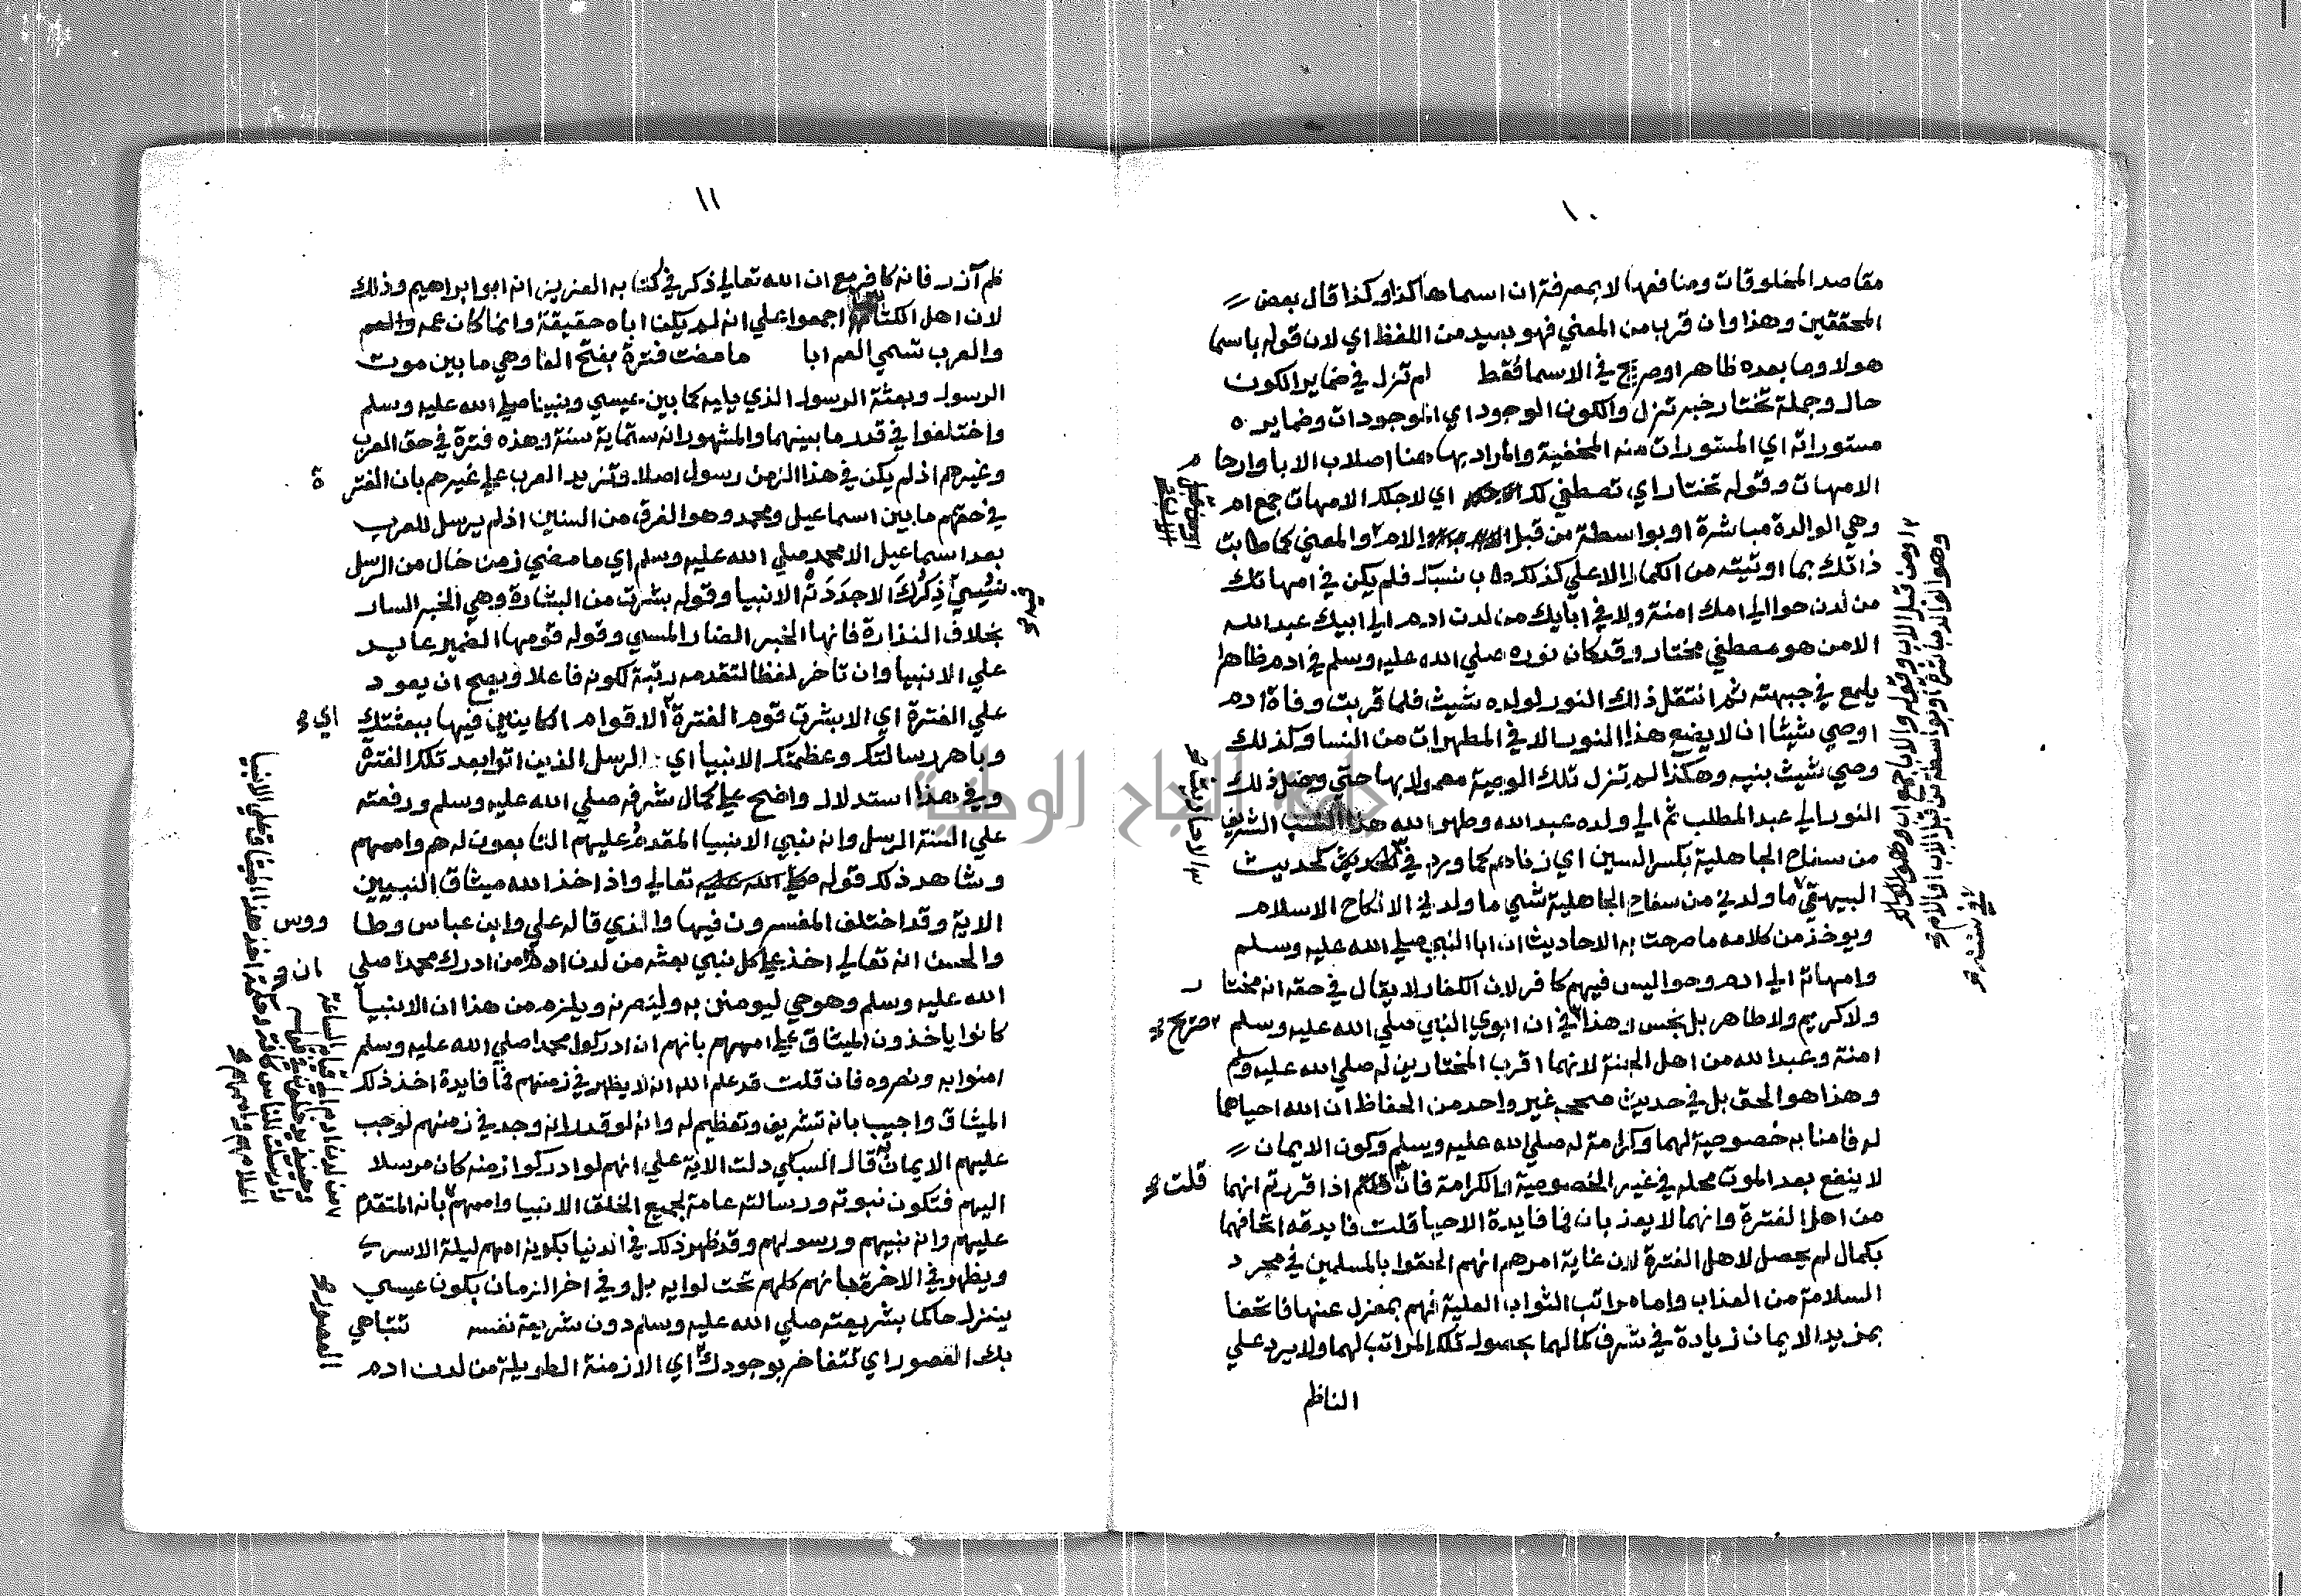 ١٠
مقاصد المخلوقات ومنافعها لا بمعرفة ان اسماها كذا وكذا قال بعض
المحققين وهذا وان قرب من المعني فهو بعيد من اللفظ اي لان قوله باسما
هولا وما بعده ظاهر او صريح في الاسما فقط لم تزل في ضماير الكون
حال وجملة تختار خبر تزل والكون الوجود اي الموجودات وضماير ه
مستوراته اي المستورات منه المخفية والمراد بها هنا اصلاب الابا وارحا م
الامهات وقوله تختار اي تصطفي لك اي لاجلك الامهات جمع ام
وهي الوالدة مباشرة او بواسطة من قبل الام والمعني كما طابت
ذاتك بما اوتيته من الكمال الاعلي كذلك طاب نسبك فلم يكن في امهاتك
من لدن حوا الي امك امنة ولا في ابايك من لدن ادم الي ابيك عبد الله
الا من هو مصطفي مختار وقد كان نوره صلي الله عليه وسلم في ادم ظاهرا
يلمع في جبهته ثم انتقل ذلك النور لولده شيث فلما قربت وفاة ادم
اوصي شيثا ان لا يضع هذا النور الا في المطهرات من النسا وكذلك
وصي شيث بنيه وهكذا لم تزل تلك الوصية معمولا بها حتي وصل ذلك
النور الي عبد المطلب ثم الي ولده عبد الله وطهر الله هذا النسب الشريف
من سفاح الجاهلية بكسر السين اي زناهم كما ورد في كحديث
البيهقي ما ولدني من سفاح الجاهلية شي ما ولدني الا نكاح الاسلام
ويوخذ من كلامه ما صرحت به الاحاديث ان ابا النبي صلي الله عليه وسلم
وامهاته الي ادم وحوا ليس فيهم كافر لان الكفار لا يقال في حقه انه مختا ر
ولا كريم ولا طاهر بل نجس وهذا في ان ابوي النبي صلي الله عليه وسلم
صريح
امنة وعبد الله من اهل الجنة لانهما اقرب المختارين له صلي الله عليه وسلم
وهذا هو الحق بل في حديث صححه غير واحد من الحفاظ ان الله احياهما
له فامنا به خصوصية لهما وكرامة له صلي الله عليه وسلم وكون الايمان
لا ينفع بعد الموت محله في غير الخصوصية والكرامة فان قلت اذا قررتم انهما
من اهل الفترة وانهما لا يعذبان فما فايدة الاحيا قلت فايدته اتحافهما
بكمال لم يحصل لاهل الفترة لان غاية امرهم انهم الحقوا بالمسلمين في مجرد
السلامة من العذاب واما مراتب الثواب العلية فهم بمعزل عنها فاتحفا
بمزيد الايمان زيادة في شرف كمالهما بحصول تلك المراتب لهما ولا يرد علي
الناظم
١١
ظم آزر فانه كافر مع ان الله تعالي ذكر في كتابه العزيز انه ابو ابراهيم وذلك
لان اهل الكتابين اجمعوا علي انه لم يكن اباه حقيقة وانما كان عمه
والعرب تسمي العم ابا ما مضت فترة بفتح الفا وهي ما بين موت
الرسول وبعثة الرسول الذي يليه كما بين عيسي ونبينا صلي الله عليه وسلم
واختلفوا في قدر ما بينهما والمشهور انه ستماية سنة وهذه فترة في حق العرب
وغيرهم اذ لم يكن في هذا الزمن رسول اصلا وتزيد العرب علي غيرهم بان الفتر ة
في حقهم ما بين اسماعيل ومحمد وهو الفرق من السنين اذ لم يرسل للعرب
بعد اسماعيل الا محمد صلي الله عليه وسلم اي ما مضي زمن خال من الرسل
نسي ذكرك الا جددته الانبيا وقوله بشرت من البشارة وهي الخبر السار
بخلاف النذارة فانها الخبر الضار المسي وقوله قومها الضمير عايد
علي الانبيا وان تاخر لفظا لتقدمه رتبة لكونه فاعلا ويصح ان يعود
علي الفترة اي الا بشرت قوم الفترة اي الاقوام الكاينين فيها ببعثتك
وباهر رسالتك وعظمتك الانبيا اي الرسل الذين اتوا بعد تلك الفترة
وفي هذا استدلال واضح علي كمال شرفه صلي الله عليه وسلم ورفعته
علي السنة الرسل وانه نبي الانبيا المقدم عليهم التابعون له هم واممهم
وشاهد ذلك قوله تعالي واذ اخذ الله ميثاق النبيين
الاية وقد اختلف المفسرون فيها والذي قاله علي وابن عباس وطا ووس
والحسن انه تعالي اخذ علي كل نبي بعثه من لدن ادم ان من ادرك محمدا صلي
الله عليه وسلم وهو حي ليومنن به ولينصرنه ويلزم من هذا ان الانبيا
كانوا ياخذون الميثاق علي اممهم بانهم ان ادركوا محمدا صلي الله عليه وسلم
امنوا به ونصروه فان قلت قد علم الله انه لا يظهر في زمنهم فما فايدة اخذ ذلك
الميثاق واجيب بانه تشريف وتعظيم له وانه لو قدر انه وجد في زمنهم لوجب
عليهم الايمان به قال السبكي دلت الاية علي انهم لو ادركوا زمنه كان مرسلا
اليهم فتكون نبوته ورسالته عامة لجميع الخلق الانبيا واممهم بانه المتقدم
عليهم وانه نبيهم ورسولهم وقد ظهر ذلك في الدنيا بكونه امهم ليلة الاسري
ويظهر في الاخرة بانهم كلهم تحت لوايه بل وفي اخر الزمان بكون عيسي
ينزل حاكما بشريعته صلي الله عليه وسلم دون شريعة نفسه تتباهي
بك العصور اي تتفاخر بوجودك اي الازمنة الطويلة من لدن ادم
العصور
جامعة النجاح الوطنية